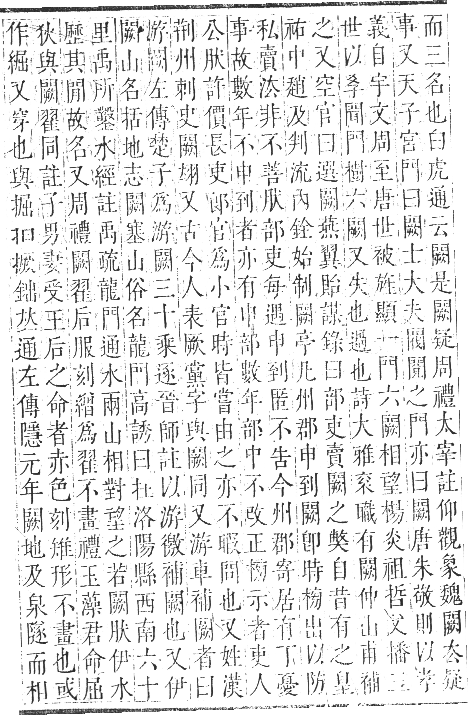 而三名也白虎通云闕是闕疑周禮太宰註仰觀象魏闕太疑
事又天子宮門曰闕士大夫閥閱之門亦曰闕唐朱敬則以孝
義自宇文周至唐世被旌顯一門六闕相望楊炎祖哲父播三
世以孝聞門樹六闕又失也過也詩大雅袞職有闕仲山甫補
之又空官曰選闕燕翼貽謀錄曰部吏賣闕之獘自昔有之皇
祐中趙及判流內銓始制闕亭凡州郡申到闕卽時榜出以防
私賣然非不善肰部吏每遇申到匿不告今州郡寄居有丁憂
事故數年不申到者亦有申部數年部中不改正榜示者吏人
公肰許價長吏郎官爲小官時皆嘗由之亦不暇問也又姓漢
荆州刺史闕翊又古今人表厥黨字與闕同又游車補闕者曰
游闕左傳楚子爲游闕三十乘逐晉師註以游徼補闕也又伊
闕山名括地志闕塞山俗名龍門高誘曰在洛陽縣西南六十
里禹所鑿水經註禹疏龍門通水兩山相對望之若闕肰伊水
歷其閒故名又周禮闕翟后服刻繒爲翟不畫禮玉藻君命屈
狄與闕翟同註子男妻受王后之命者赤色刻雉形不畫也或
作𥦔又穿也與掘𢪏撅𨧱𠀤通左傳隱元年闕地及泉隧而相